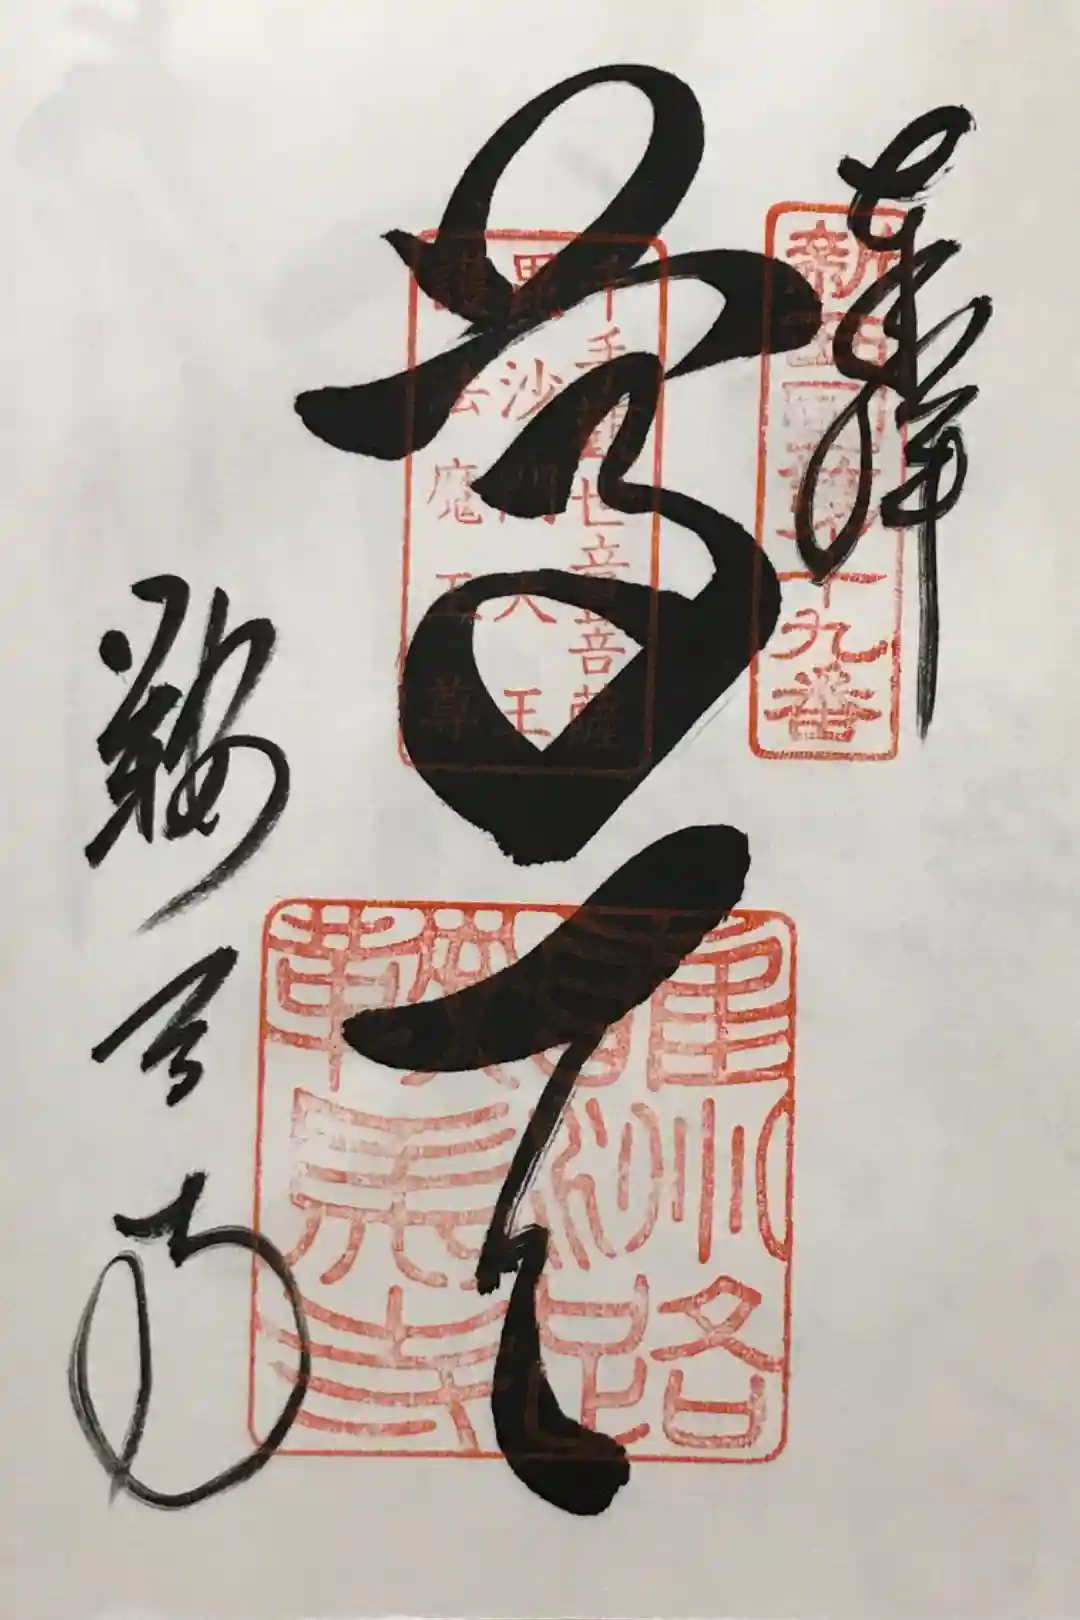 奉拝
新西國第十九番
尊天
千手觀世音菩薩
毘沙門天王
護法魔王尊
鞍馬寺